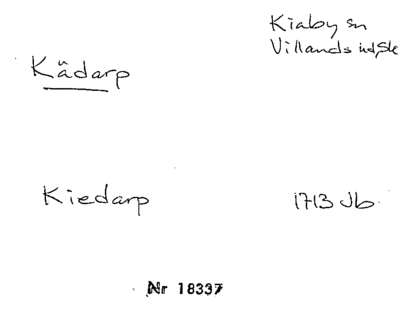 Kiaby sn
Villands hd, Sk
Kädarp
Kiedarp
1713 Jb.
Nr 18337